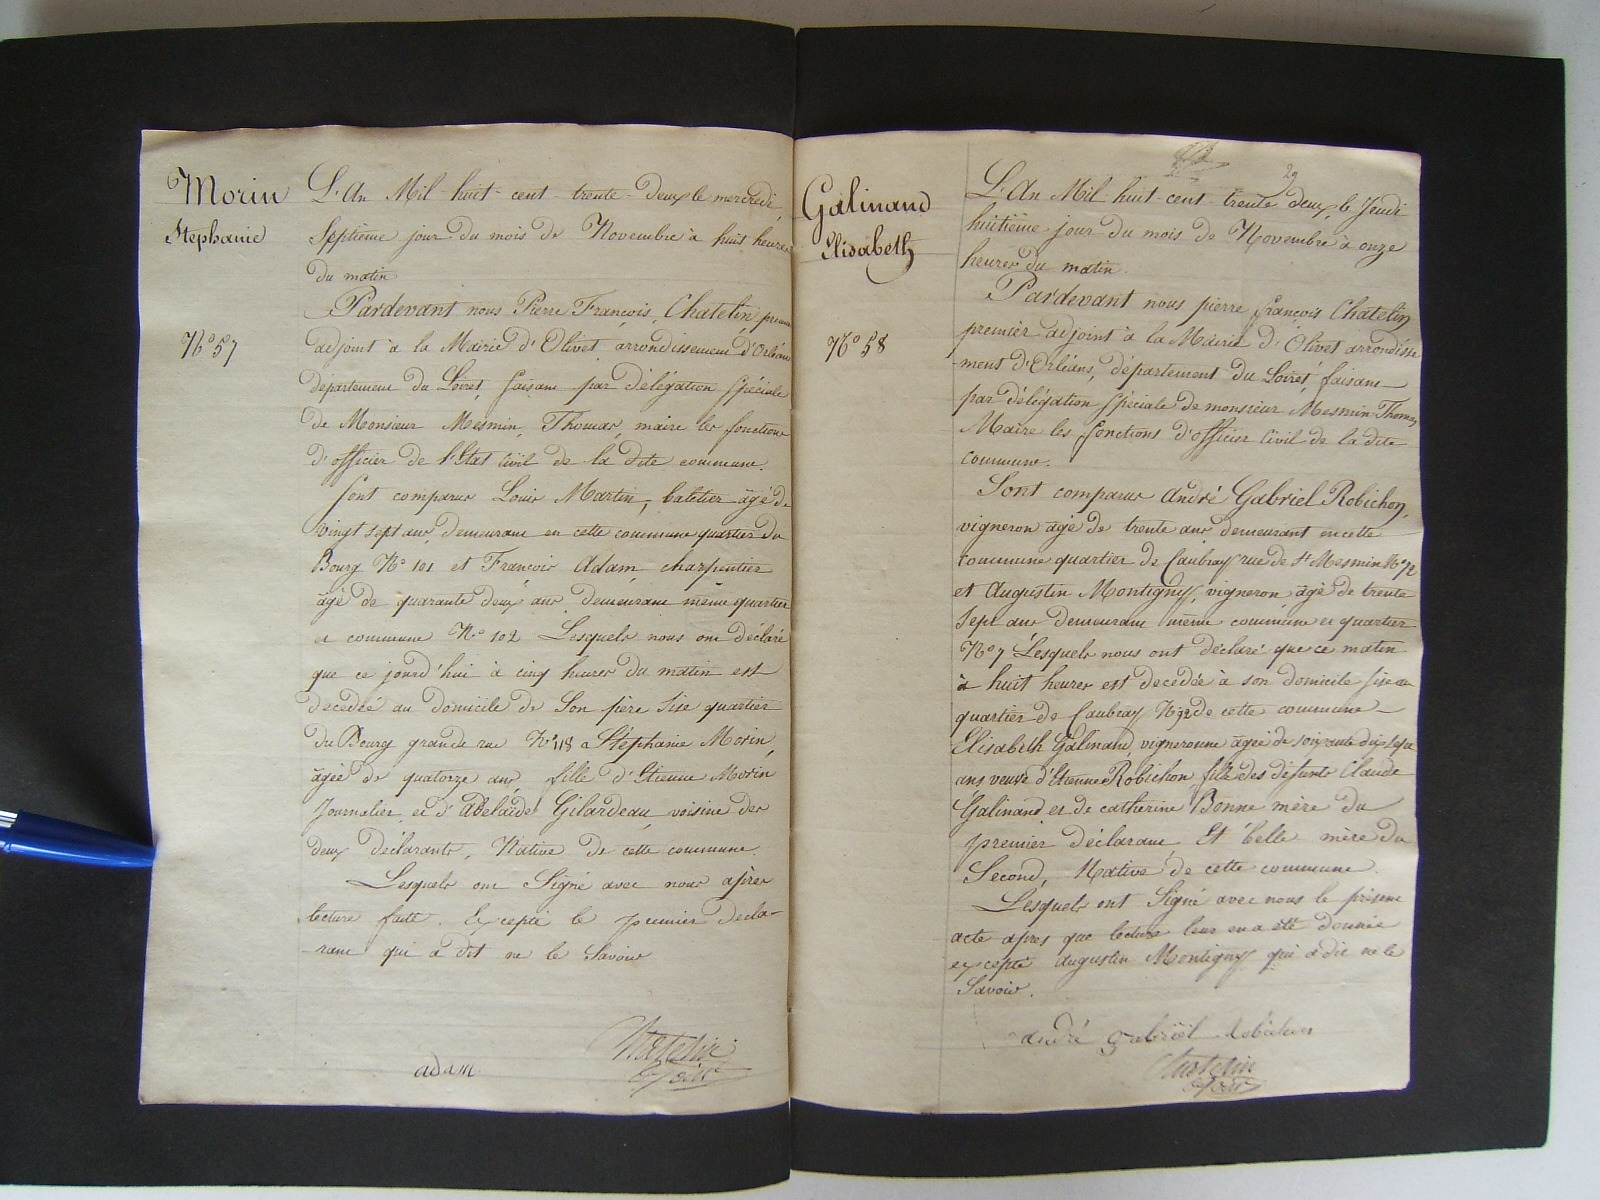 Morin
Stephanie
N° 57
L'An Mil huit cent trente Deux le mercredi
Septième jour du mois de Novembre à huit heures
du matin
Pardevant nous Pierre François Chatelin premier
adjoint à la Mairie d'Olivet arrondissement d'Orléans
departement du Loiret, faisant par délégation Spéciale
de Monsieur Mesmin Thomas, maire les fonctions
d'officier de l'Etat Civil de la dite commune.
Sont comparus Louis Martin, batelier âgé de
vingt sept ans, demeurant en cette commune quartier du
Bourg N° 101 et François Adam charpentier
âgé de quarante deux ans demeurant même quartier
et commune N° 102 Lesquels nous ont déclaré
que ce jourd'hui à cinq heures du matin est
décédée au domicile de Son père Sise quartier
du Bourg grande rue N° 118 a Stephanie Morin
âgée de quatorze ans, fille d'Etienne Morin
Journalier et d'Adelaïde Gilardeau, voisine des
deux déclarants, Native de cette commune.
Lesquels ont Signé avec nous après
lecture faite. Excepté le premier décla-
rant qui a dit ne le Savoir
adam
Chatelin
adjoint
29
Galinand
Elisabeth
N° 58
L'An Mil huit cent trente deux, le Jeudi
huitième jour du mois de Novembre à onze
heures du matin.
Pardevant nous pierre françois Chatelin
premier adjoint à la Mairie d'Olivet arrondisse
ment d'Orléans, département du Loiret, faisant
par délégation Spéciale de monsieur Mesmin Thomas
Maire les fonctions d'officier Civil de la dite
commune.
Sont comparus André Gabriel Robichon,
vigneron âgé de trente ans demeurant en cette
commune quartier de Caubray rue de St Mesmin N° 72
et Augustin Montigny, vigneron âgé de trente
Sept ans demeurant même commune et quartier
N° 7 Lesquels nous ont déclaré que ce matin
à huit heures est décédée à son domicile sise au
quartier de Caubray N° 92 de cette commune
Elisabeth Galinand vigneronne âgée de soixante dix sept
ans veuve d'Etienne Robichon, fille des défunts Claude
Galinand et de catherine Bonne mère du
premier déclarant Et belle mère du
Second, Native de cette commune.
Lesquels ont Signé avec nous le présent
acte après que lecture leur en a été donnée
excepté Augustin Montigny qui a dit ne le
Savoir.
andré gabriel robichon
Chatelin
adjoint